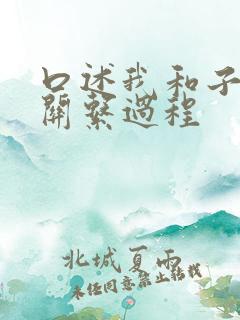 口述我和子
關繫過程
北城夏雨
未经同意禁止转载